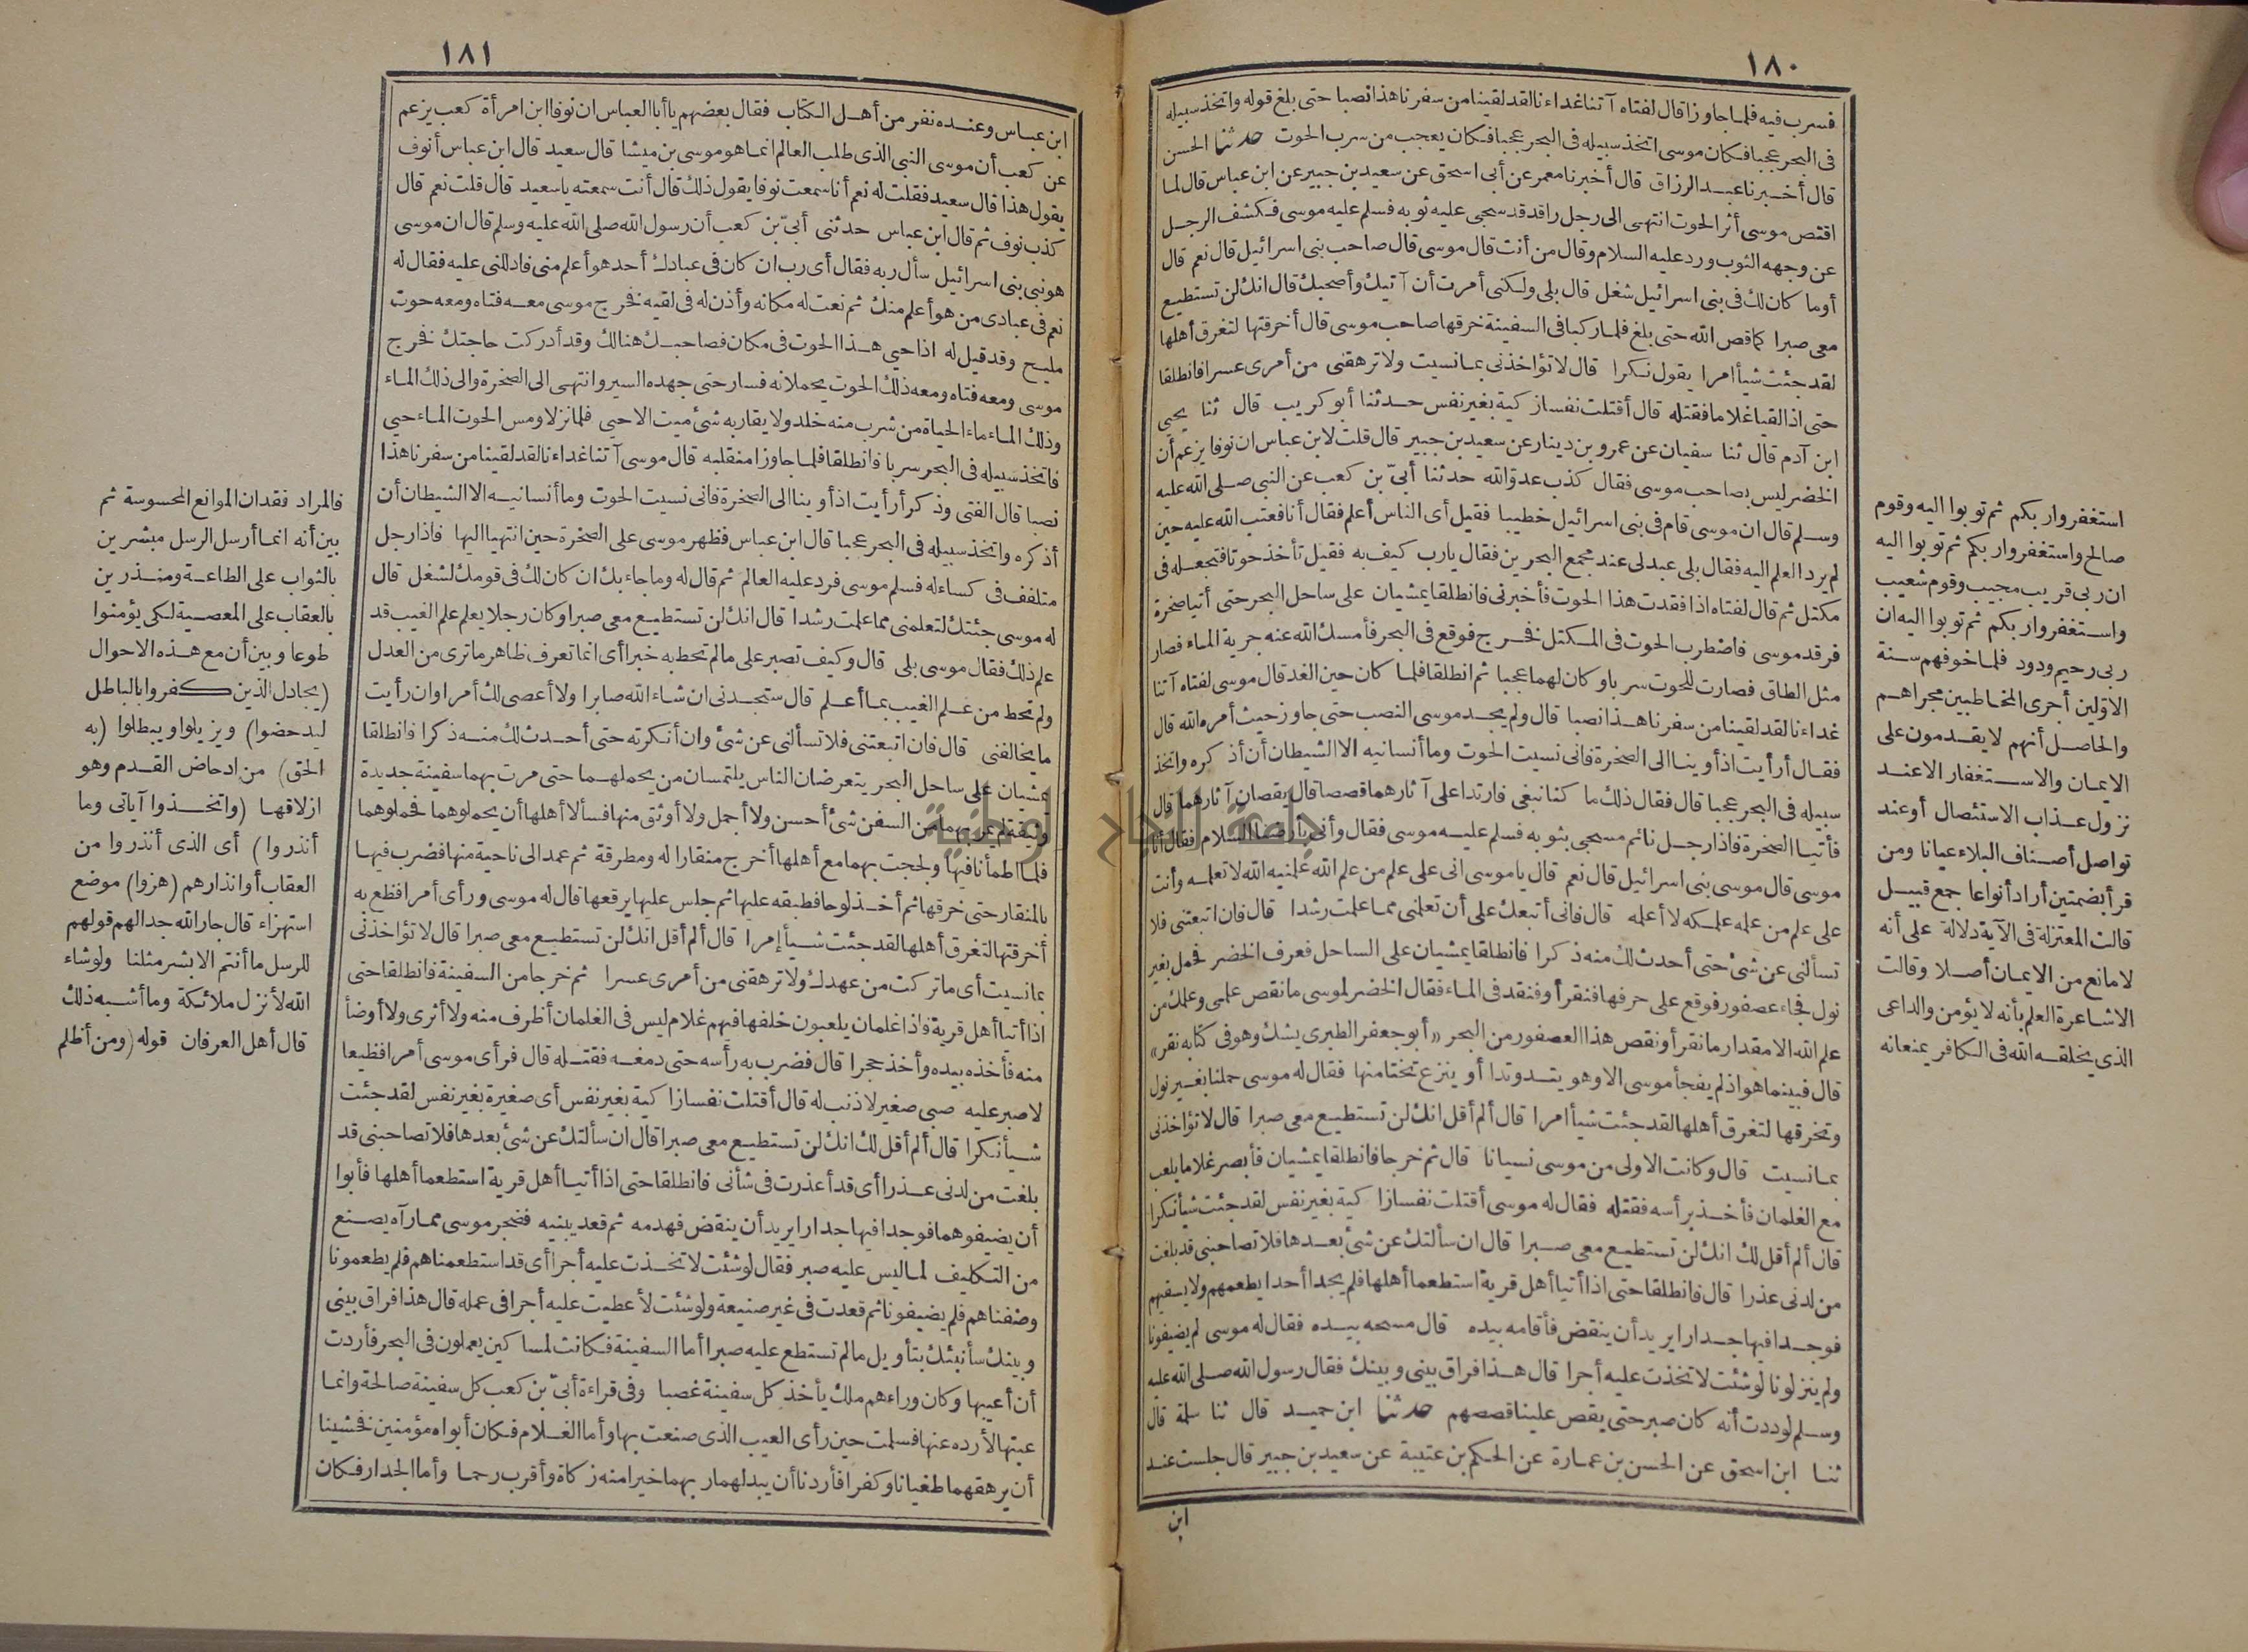 ١٨٠
فسرب فيه فلما جاوزا قال لفتاه آتنا غداءنا لقد لقينا من سفرنا هذا نصبا حتى بلغ قوله واتخذ سبيله
فى البحر عجبا فكان موسى اتخذ سبيله فى البحر عجبا فكان يعجب من سرب الحوت حدثنا الحسن
قال أخبرنا عبد الرزاق قال أخبرنا معمر عن أبى اسحق عن سعيد بن جبير عن ابن عباس قال لما
اقتص موسى أثر الحوت انتهى الى رجل راقد قد سجى عليه ثوبه فسلم عليه موسى فكشف الرجل
عن وجهه الثوب ورد عليه السلام وقال من أنت قال موسى قال صاحب بنى اسرائيل قال نعم قال
أوما كان لك فى بنى اسرائيل شغل قال بلى ولكنى أمرت أن آتيك وأصحبك قال انك لن تستطيع
معى صبرا كما قص الله حتى بلغ فلما ركبا فى السفينة خرقها صاحب موسى قال أخرقتها لتغرق أهلها
لقد جئت شيأ امرا يقول نكرا قال لا تؤاخذنى بما نسيت ولا ترهقنى من أمرى عسرا فانطلقا
حتى اذا لقيا غلاما فقتله قال أقتلت نفسا زكية بغير نفس حدثنا أبو كريب قال ثنا يحيى
ابن آدم قال ثنا سفيان عن عمرو بن دينار عن سعيد بن جبير قال قلت لابن عباس ان نوفا يزعم أن
الخضر ليس بصاحب موسى فقال كذب عدو الله حدثنا أبىّ بن كعب عن النبى صلى الله عليه
وسلم قال ان موسى قام فى بنى اسرائيل خطيبا فقيل أى الناس أعلم فقال أنا فعتب الله عليه حين
لم يرد العلم اليه فقال بلى عبد لى عند مجمع البحرين فقال يارب كيف به فقيل تأخذ حوتا فتجعله فى
مكتل ثم قال لفتاه اذا فقدت هذا الحوت فأخبرنى فانطلقا يمشيان على ساحل البحر حتى أتيا صخرة
فرقد موسى فاضطرب الحوت فى المكتل فخرج فوقع فى البحر فأمسك الله عنه جرية الماء فصار
مثل الطاق فصارت للحوت سربا وكان لهما عجبا ثم انطلقا فلما كان حين الغد قال موسى لفتاه آتنا
غداءنا لقد لقينا من سفرنا هذا نصبا قال ولم يجد موسى النصب حتى جاوز حيث أمره الله قال
فقال أرأيت اذ أوينا الى الصخرة فانى نسيت الحوت وما أنسانيه الا الشيطان أن أذكره واتخذ
سبيله فى البحر عجبا قال فقال ذلك ما كنا نبغى فارتدا على آثارهما قصصا قال يقصان آثارهما قال
فأتيا الصخرة فاذا رجل نائم مسجى بثوبه فسلم عليه موسى فقال وأنى بأرضنا السلام فقال أنا
موسى قال موسى بنى اسرائيل قال نعم قال يا موسى انى على علم من علم الله علمنيه الله لا تعلمه وأنت
على علم من علمه علمكه لا أعلمه قال فانى أتبعك على أن تعلمنى مما علمت رشدا قال فان اتبعتنى فلا
تسألنى عن شئ حتى أحدث لك منه ذكرا فانطلقا يمشيان على الساحل فعرف الخضر فحمل بغير
نول فجاء عصفور فوقع على حرفها فنقر أو فنقد فى الماء فقال الخضر لموسى ما نقص علمى وعلمك من
علم الله الا مقدار ما نقر أو نقص هذا العصفور من البحر «أبو جعفر الطبرى يشك وهو فى كتابه نقر»
قال فبينما هو اذ لم يفجأ موسى الا وهو يتد وتدا أو ينزع تختا منها فقال له موسى حملنا بغير نول
وتخرقها لتغرق أهلها لقد جئت شيأ امرا قال ألم أقل انك لن تستطيع معى صبرا قال لا تؤاخذنى
بما نسيت قال وكانت الاولى من موسى نسيانا قال ثم خرجا فانطلقا يمشيان فأبصر غلاما يلعب
مع الغلمان فأخذ برأسه فقتله فقال له موسى أقتلت نفسا زاكية بغير نفس لقد جئت شيأ نكرا
قال ألم أقل لك انك لن تستطيع معى صبرا قال ان سألتك عن شئ بعدها فلا تصاحبنى قد بلغت
من لدنى عذرا قال فانطلقا حتى اذا أتيا أهل قرية استطعما أهلها فلم يجدا أحدا يطعمهم ولا يسقيهم
فوجدا فيها جدارا يريد أن ينقض فأقامه بيده قال مسحه بيده فقال له موسى لم يضيفونا
ولم ينزلونا لو شئت لاتخذت عليه أجرا قال هذا فراق بينى وبينك فقال رسول الله صلى الله عليه
وسلم لوددت أنه كان صبر حتى يقص علينا قصصهم حدثنا ابن حميد قال ثنا سلمة قال
ثنا ابن اسحق عن الحسن بن عمارة عن الحكم بن عتيبة عن سعيد بن جبير قال جلست عند
ابن
استغفروا ربكم ثم توبوا اليه وقوم
صالح واستغفروا ربكم ثم توبوا اليه
ان ربى قريب مجيب وقوم شعيب
واستغفروا ربكم ثم توبوا اليه ان
ربى رحيم ودود فلما خوفهم سنة
الاوّلين أجرى المخاطبين مجراهم
والحاصل أنهم لا يقدمون على
الايمان والاستغفار الا عند
نزول عذاب الاستئصال أو عند
تواصل أصناف البلاء عيانا ومن
قرأ بضمتين أراد أنواعا جمع قبيل
قالت المعتزلة فى الآية دلالة على أنه
لا مانع من الايمان أصلا وقالت
الاشاعرة العلم بأنه لا يؤمن والداعى
الذى يخلقه الله فى الكافر يمنعانه
١٨١
ابن عباس وعنده نفر من أهل الكتاب فقال بعضهم يا أبا العباس ان نوفا ابن امرأة كعب يزعم
عن كعب أن موسى النبى الذى طلب العالم انما هو موسى بن ميشا قال سعيد قال ابن عباس أنوف
يقول هذا قال سعيد فقلت له نعم أنا سمعت نوفا يقول ذلك قال أنت سمعته يا سعيد قال قلت نعم قال
كذب نوف ثم قال ابن عباس حدثنى أبىّ بن كعب أن رسول الله صلى الله عليه وسلم قال ان موسى
هو نبى بنى اسرائيل سأل ربه فقال أى رب ان كان فى عبادك أحد هو أعلم منى فادللنى عليه فقال له
نعم فى عبادى من هو أعلم منك ثم نعت له مكانه وأذن له فى لقيه فخرج موسى معه فتاه ومعه حوت
مليح وقد قيل له اذا حيي هذا الحوت فى مكان فصاحبك هنالك وقد أدركت حاجتك فخرج
موسى ومعه فتاه ومعه ذلك الحوت يحملانه فسار حتى جهده السير وانتهى الى الصخرة والى ذلك الماء
وذلك الماء ماء الحياة من شرب منه خلد ولا يقاربه شئ ميت الا حيي فلما نزلا ومس الحوت الماء حيي
فاتخذ سبيله فى البحر سربا فانطلقا فلما جاوزا منقلبه قال موسى آتنا غداءنا لقد لقينا من سفرنا هذا
نصبا قال الفتى وذكر أرأيت اذ أوينا الى الصخرة فانى نسيت الحوت وما أنسانيه الا الشيطان أن
أذكره واتخذ سبيله فى البحر عجبا قال ابن عباس فظهر موسى على الصخرة حين انتهيا اليها فاذا رجل
متلفف فى كساء له فسلم موسى فرد عليه العالم ثم قال له وما جاء بك ان كان لك فى قومك لشغل قال
له موسى جئتك لتعلمنى مما علمت رشدا قال انك لن تستطيع معى صبرا وكان رجلا يعلم علم الغيب قد
علم ذلك فقال موسى بلى قال وكيف تصبر على ما لم تحط به خبرا أى انما تعرف ظاهر ما ترى من العدل
ولم تحط من علم الغيب بما أعلم قال ستجدنى ان شاء الله صابرا ولا أعصى لك أمرا وان رأيت
ما يخالفنى قال فان اتبعتنى فلا تسألنى عن شئ وان أنكرته حتى أحدث لك منه ذكرا فانطلقا
يمشيان على ساحل البحر يتعرضان الناس يلتمسان من يحملهما حتى مرت بهما سفينة جديدة
وثيقة لم يمر بهما من السفن شئ أحسن ولا أجمل ولا أوثق منها فسألا أهلها أن يحملوهما فحملوهما
فلما اطمأنا فيها ولججت بهما مع أهلها أخرج منقارا له ومطرقة ثم عمد الى ناحية منها فضرب فيها
بالمنقار حتى خرقها ثم أخذ لوحا فطبقه عليها ثم جلس عليها يرقعها قال له موسى ورأى أمرا فظع به
أخرقتها لتغرق أهلها لقد جئت شيأ إمرا قال ألم أقل انك لن تستطيع معى صبرا قال لا تؤاخذنى
بما نسيت أى ما تركت من عهدك ولا ترهقنى من أمرى عسرا ثم خرجا من السفينة فانطلقا حتى
اذا أتيا أهل قرية فاذا غلمان يلعبون خلفها فيهم غلام ليس فى الغلمان أظرف منه ولا أثرى ولا أوضأ
منه فأخذه بيده وأخذ حجرا قال فضرب به رأسه حتى دمغه فقتله قال فرأى موسى أمرا فظيعا
لا صبر عليه صبى صغير لا ذنب له قال أقتلت نفسا زاكية بغير نفس أى صغيرة بغير نفس لقد جئت
شيأ نكرا قال ألم أقل لك انك لن تستطيع معى صبرا قال ان سألتك عن شئ بعدها فلا تصاحبنى قد
بلغت من لدنى عذرا أى قد أعذرت فى شأنى فانطلقا حتى اذا أتيا أهل قرية استطعما أهلها فأبوا
أن يضيفوهما فوجدا فيها جدارا يريد أن ينقض فهدمه ثم قعد يبنيه فضجر موسى مما رآه يصنع
من التكليف لما ليس عليه صبر فقال لو شئت لاتخذت عليه أجرا أى قد استطعمناهم فلم يطعمونا
وضفناهم فلم يضيفونا ثم قعدت فى غير صنيعة ولو شئت لأعطيت عليه أجرا فى عمله قال هذا فراق بينى
وبينك سأنبئك بتأويل ما لم تستطع عليه صبرا أما السفينة فكانت لمساكين يعملون فى البحر فأردت
أن أعيبها وكان وراءهم ملك يأخذ كل سفينة غصبا وفى قراءة أبىّ بن كعب كل سفينة صالحة وانما
عبتها لأرده عنها فسلمت حين رأى العيب الذى صنعت بها وأما الغلام فكان أبواه مؤمنين فخشينا
أن يرهقهما طغيانا وكفرا فأردنا أن يبدلهما ربهما خيرا منه زكاة وأقرب رحما وأما الجدار فكان
فالمراد فقدان الموانع المحسوسة ثم
بين أنه انما أرسل الرسل مبشرين
بالثواب على الطاعة ومنذرين
بالعقاب على المعصية لكى يؤمنوا
طوعا وبين أن مع هذه الاحوال
(يجادل الذين كفروا بالباطل
ليدحضوا) ويزيلوا ويبطلوا (به
الحق) من ادحاض القدم وهو
ازلاقها (واتخذوا آياتى وما
أنذروا) أى الذى أنذروا من
العقاب أو انذارهم (هزوا) موضع
استهزاء قال جار الله جدالهم قولهم
للرسل ما أنتم الا بشر مثلنا ولو شاء
الله لأنزل ملائكة وما أشبه ذلك
قال أهل العرفان قوله (ومن أظلم
جامعة النجاح الوطنية